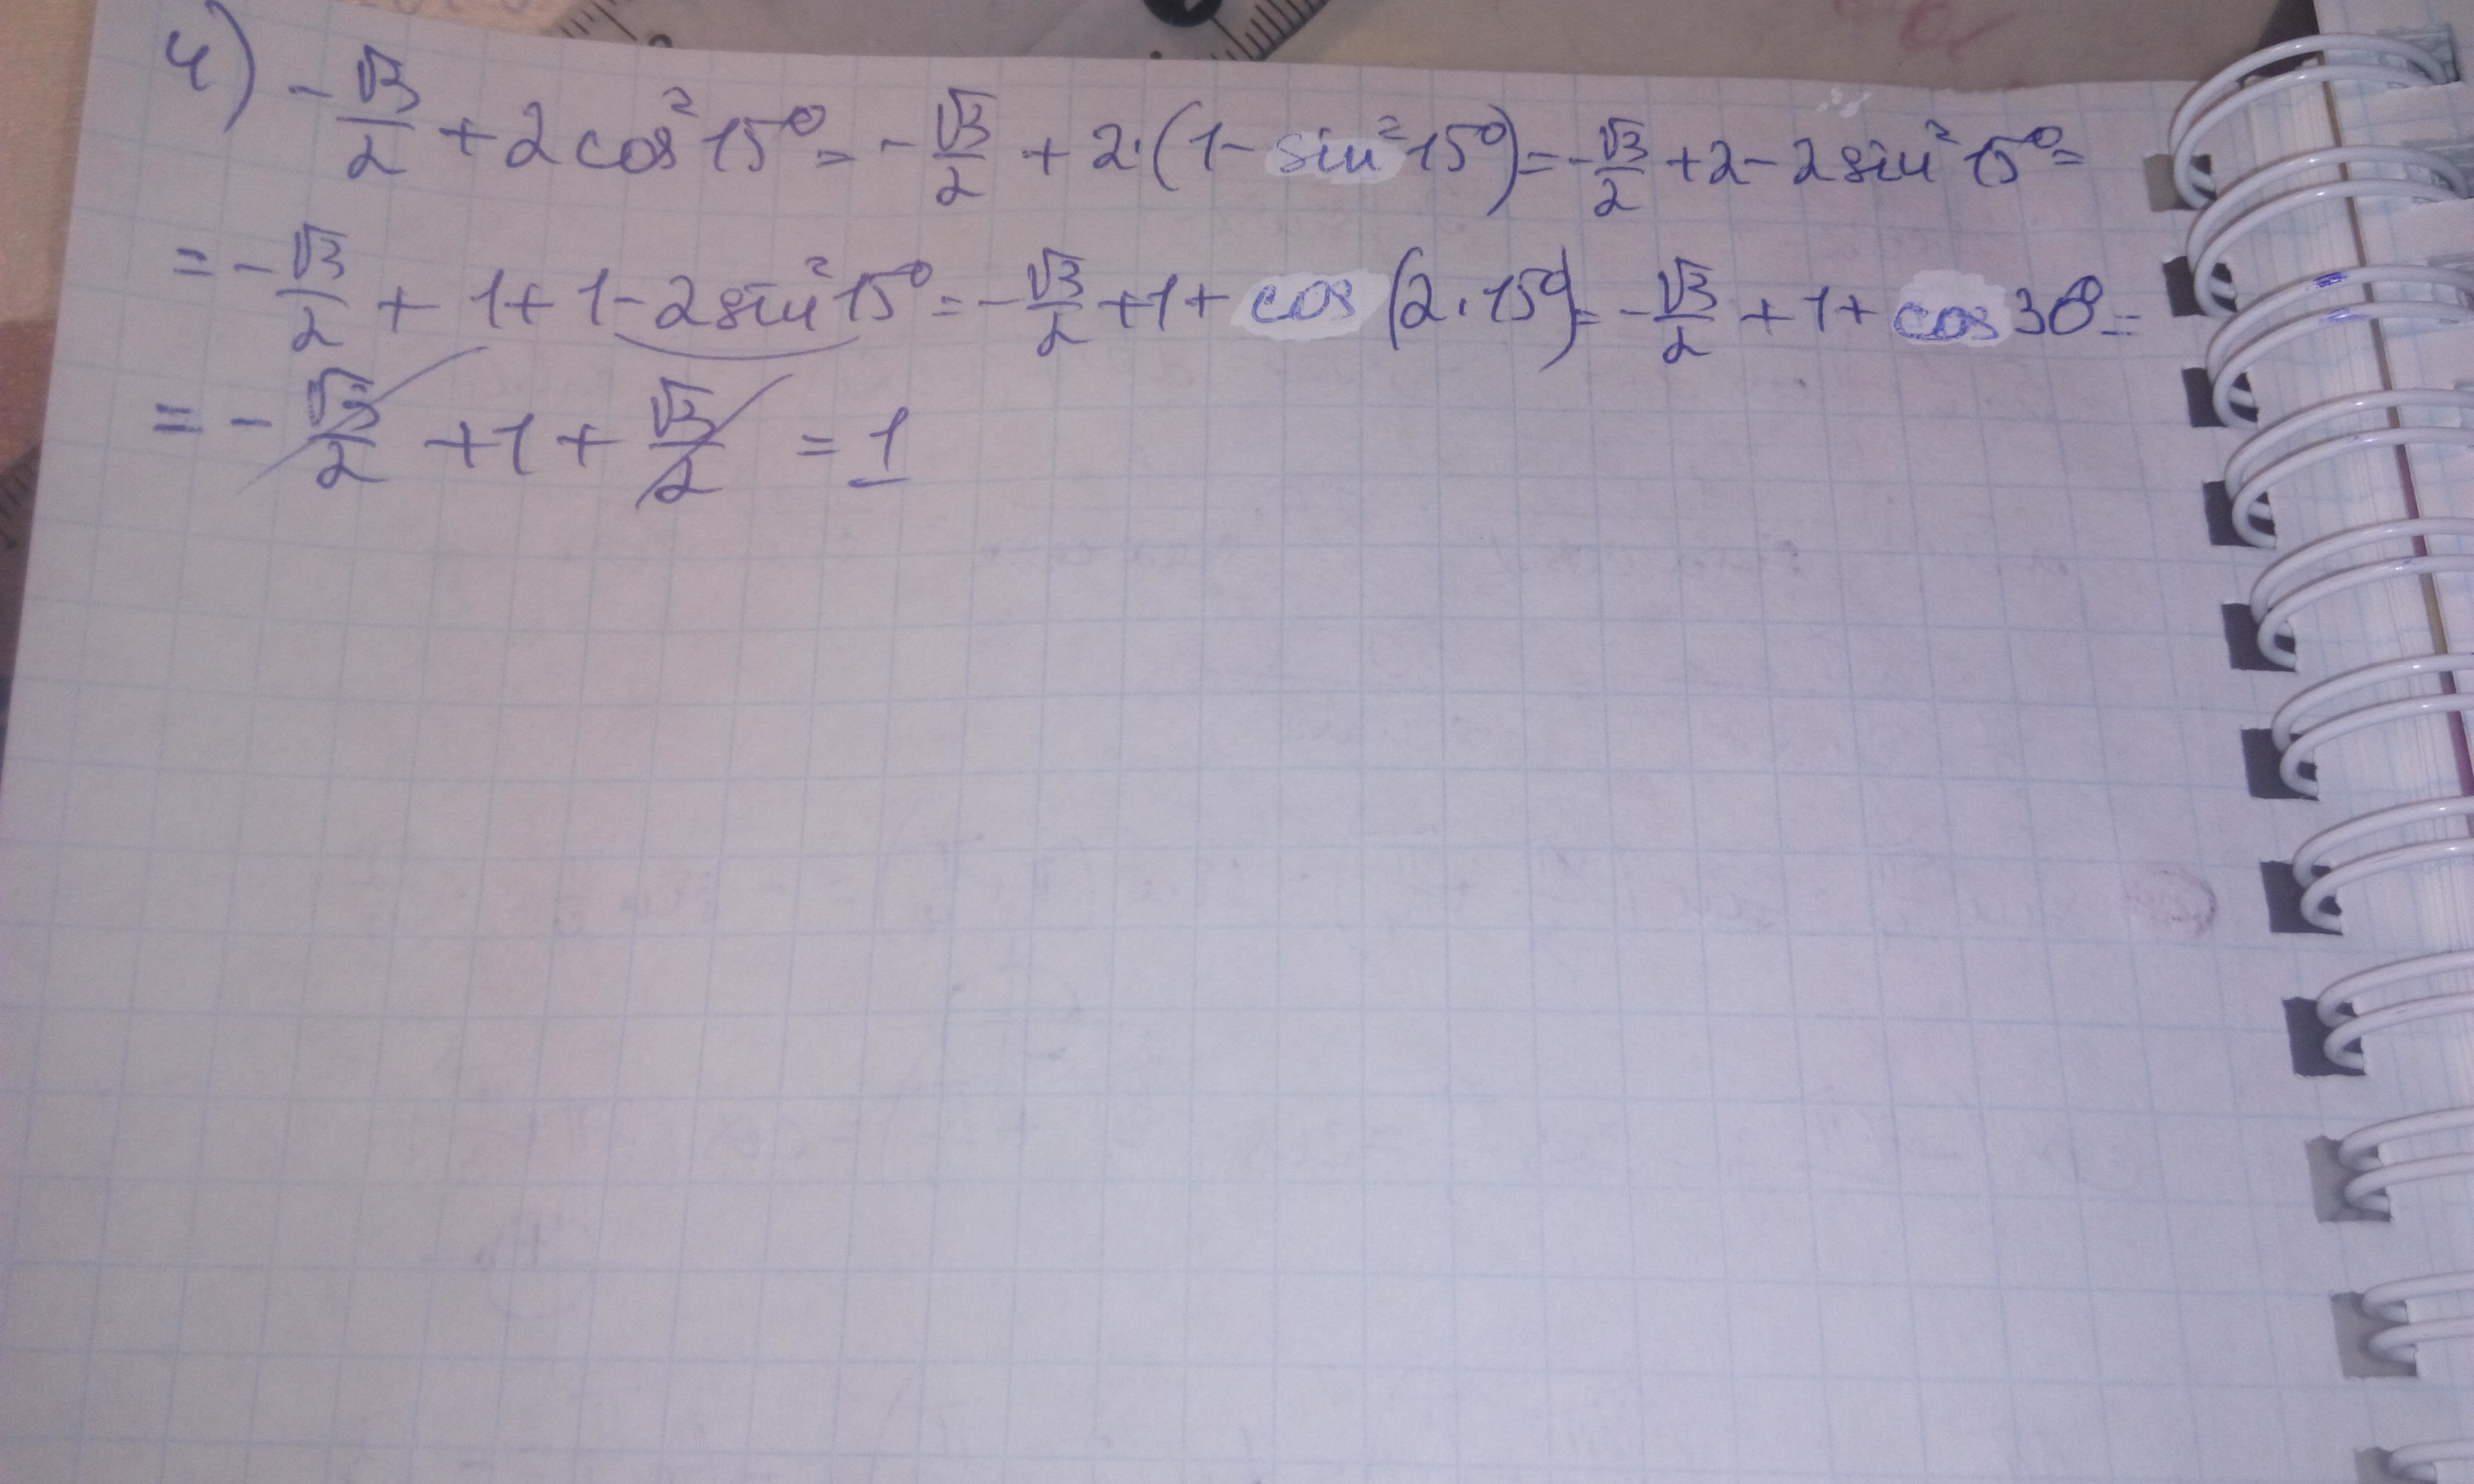 4) -√3/2 + 2cos²15° = -√3/2 + 2·(1 - sin²15°) = -√3/2 + 2 - 2sin²15° =
= -√3/2 + 1 + 1 - 2sin²15° = -√3/2 + 1 + cos(2·15°) = -√3/2 + 1 + cos30° =
= -√3/2 + 1 + √3/2 = 1